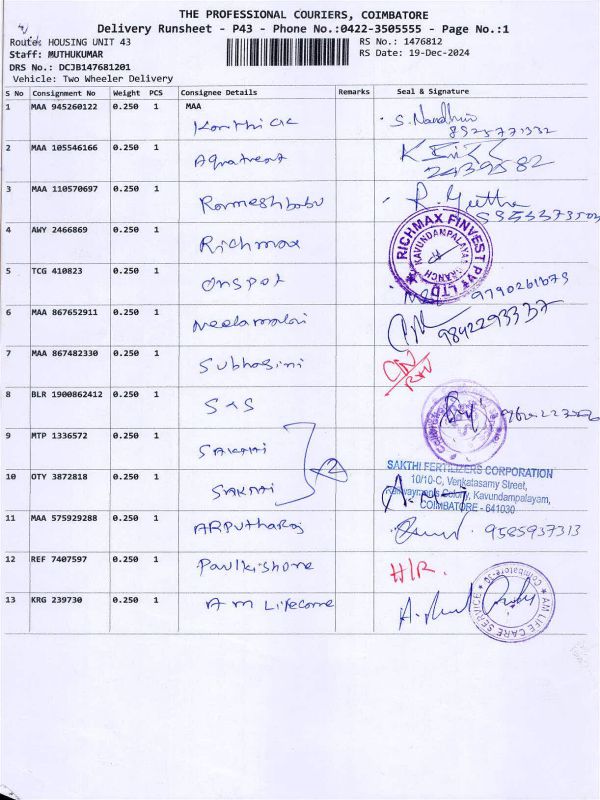 THE PROFESSIONAL COURIERS, COIMBATORE
Delivery Runsheet - P43 - Phone No.:0422-3505555 - Page No.:1
Route: HOUSING UNIT 43
RS No.: 1476812
Staff: MUTHUKUMAR
RS Date: 19-Dec-2024
DRS No.: DCJB147681201
Vehicle: Two Wheeler Delivery
S No Consignment No Weight PCS Consignee Details Remarks Seal & Signature
1 MAA 945260122 0.250 1 MAA
Karthick S. Nandhini
8925771332
2 MAA 105546166 0.250 1
Aquatreat 24395 82
3 MAA 110570697 0.250 1
Rameshbabu R. Geetha
4 AWY 2466869 0.250 1
Richmax RICHMAX FINVEST PVT LTD KAVUNDAMPALAYAM BRANCH
5 TCG 410823 0.250 1
Onspot 9790261673
6 MAA 867652911 0.250 1
Neelamalai 9842293337
7 MAA 867482330 0.250 1
Subhasini
8 BLR 1900862412 0.250 1
S & S
9 MTP 1336572 0.250 1
SAKTHI 2
SAKTHI FERTILIZERS CORPORATION
10/10-C, Venkatasamy Street,
Colony, Kavundampalayam,
COIMBATORE - 641030
10 OTY 3872818 0.250 1
SAKTHI
11 MAA 575929288 0.250 1
ARPUtharaj 9585937313
12 REF 7407597 0.250 1
Paulkishore H/R.
13 KRG 239730 0.250 1
A M Lifecare AM LIFE CARE SERVICE Coimbatore-30